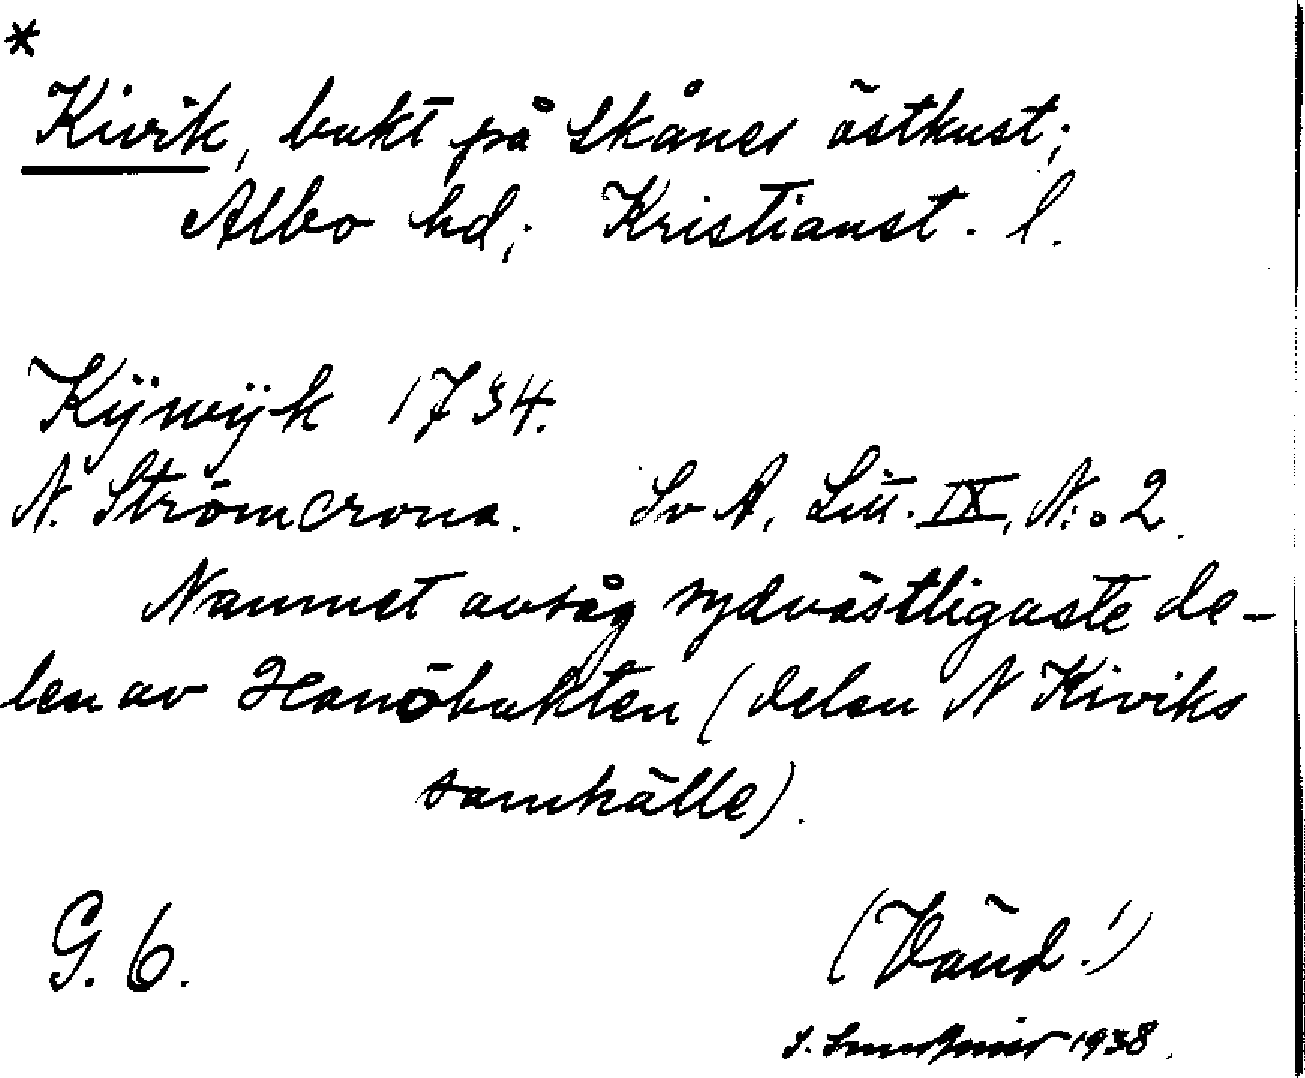 *
Kivik, bukt på Skånes östkust;
Albo hd; Kristianst. l.
Kÿwÿk 1734.
N. Strömcrona. Sv A, Litt. IX, N:o 2.
Namnet avsåg sydvästligaste de-
len av Hanöbukten (delen N Kiviks
samhälle).
G. 6.
(Vänd!)
S. 1938.